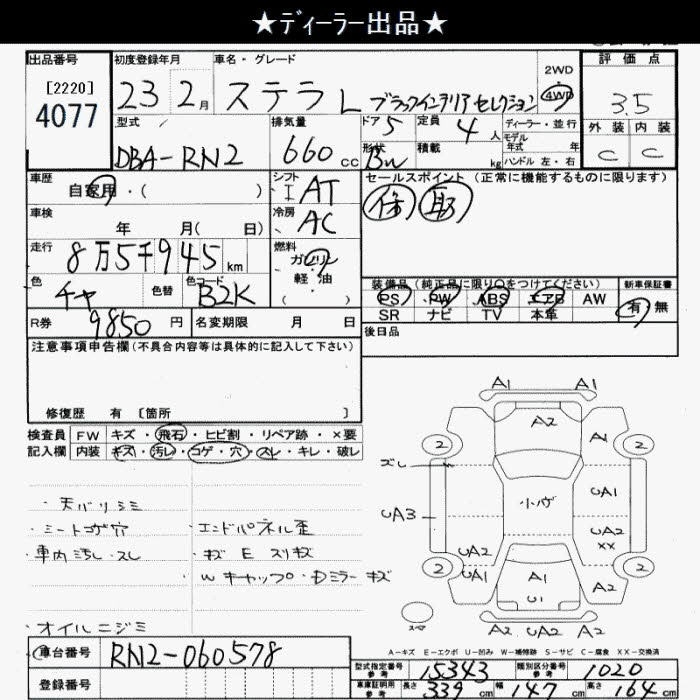 ★ディーラー出品★
出品番号
[2220]
4077
初度登録年月
23 2月
車名・グレード
ステラ L ブラックインテリアセレクション
2WD
4WD
評価点
3.5
外装 内装
C C
型式
DBA-RN2
排気量
660cc
ドア 5
形状 Bw
定員 4人
積載 kg
ディーラー・並行
モデル年式 年
ハンドル 左・右
車歴
自家用・( )
シフト
I AT
冷房
AC
セールスポイント (正常に機能するものに限ります)
保 取
車検
年 月( 日)
走行
8万5千945km
燃料
ガソリン
軽油
( )
色
チャ
色替
色コード
B2K
装備品(純正品に限り○をつけてください)
PS PW ABS エアB AW
SR ナビ TV 本革
新車保証書
有 無
R券 9850円
名変期限 月 日
後日品
注意事項申告欄(不具合内容等は具体的に記入して下さい)
修復歴 有 [箇所 ]
検査員記入欄
FW キズ・飛石・ヒビ割・リペア跡・×要
内装 キズ・汚レ・コゲ・穴・スレ・キレ・破レ
・天バリシミ
・シートコゲ穴
・車内汚し・スレ
・エンドパネル歪
・キズ E スリキズ
・Wキャップ・Dミラーキズ
・オイルニジミ
A1 A1
A2
2 A1 2
ズレ
小ハゲ
UA1
UA3
UA2
XX
UA2
UA1
2 2
A1
U1
A2
A2 UA2 A2
スペア
A-キズ E-エクボ U-凹み W-補修跡 S-サビ C-腐食 XX-交換済
車台番号 RN2-060578
登録番号
型式指定番号参考 15343
類別区分番号参考 1020
車庫証明用参考 長さ 339cm 幅 147cm 高さ 164cm